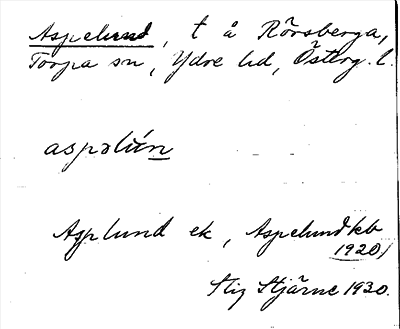 Aspelund, t å Rörsberga,
Torpa sn, Ydre hd, Österg. l.
aspəlún
Asplund ek, Aspelund kb
1920/
Stig Stjärne 1930.